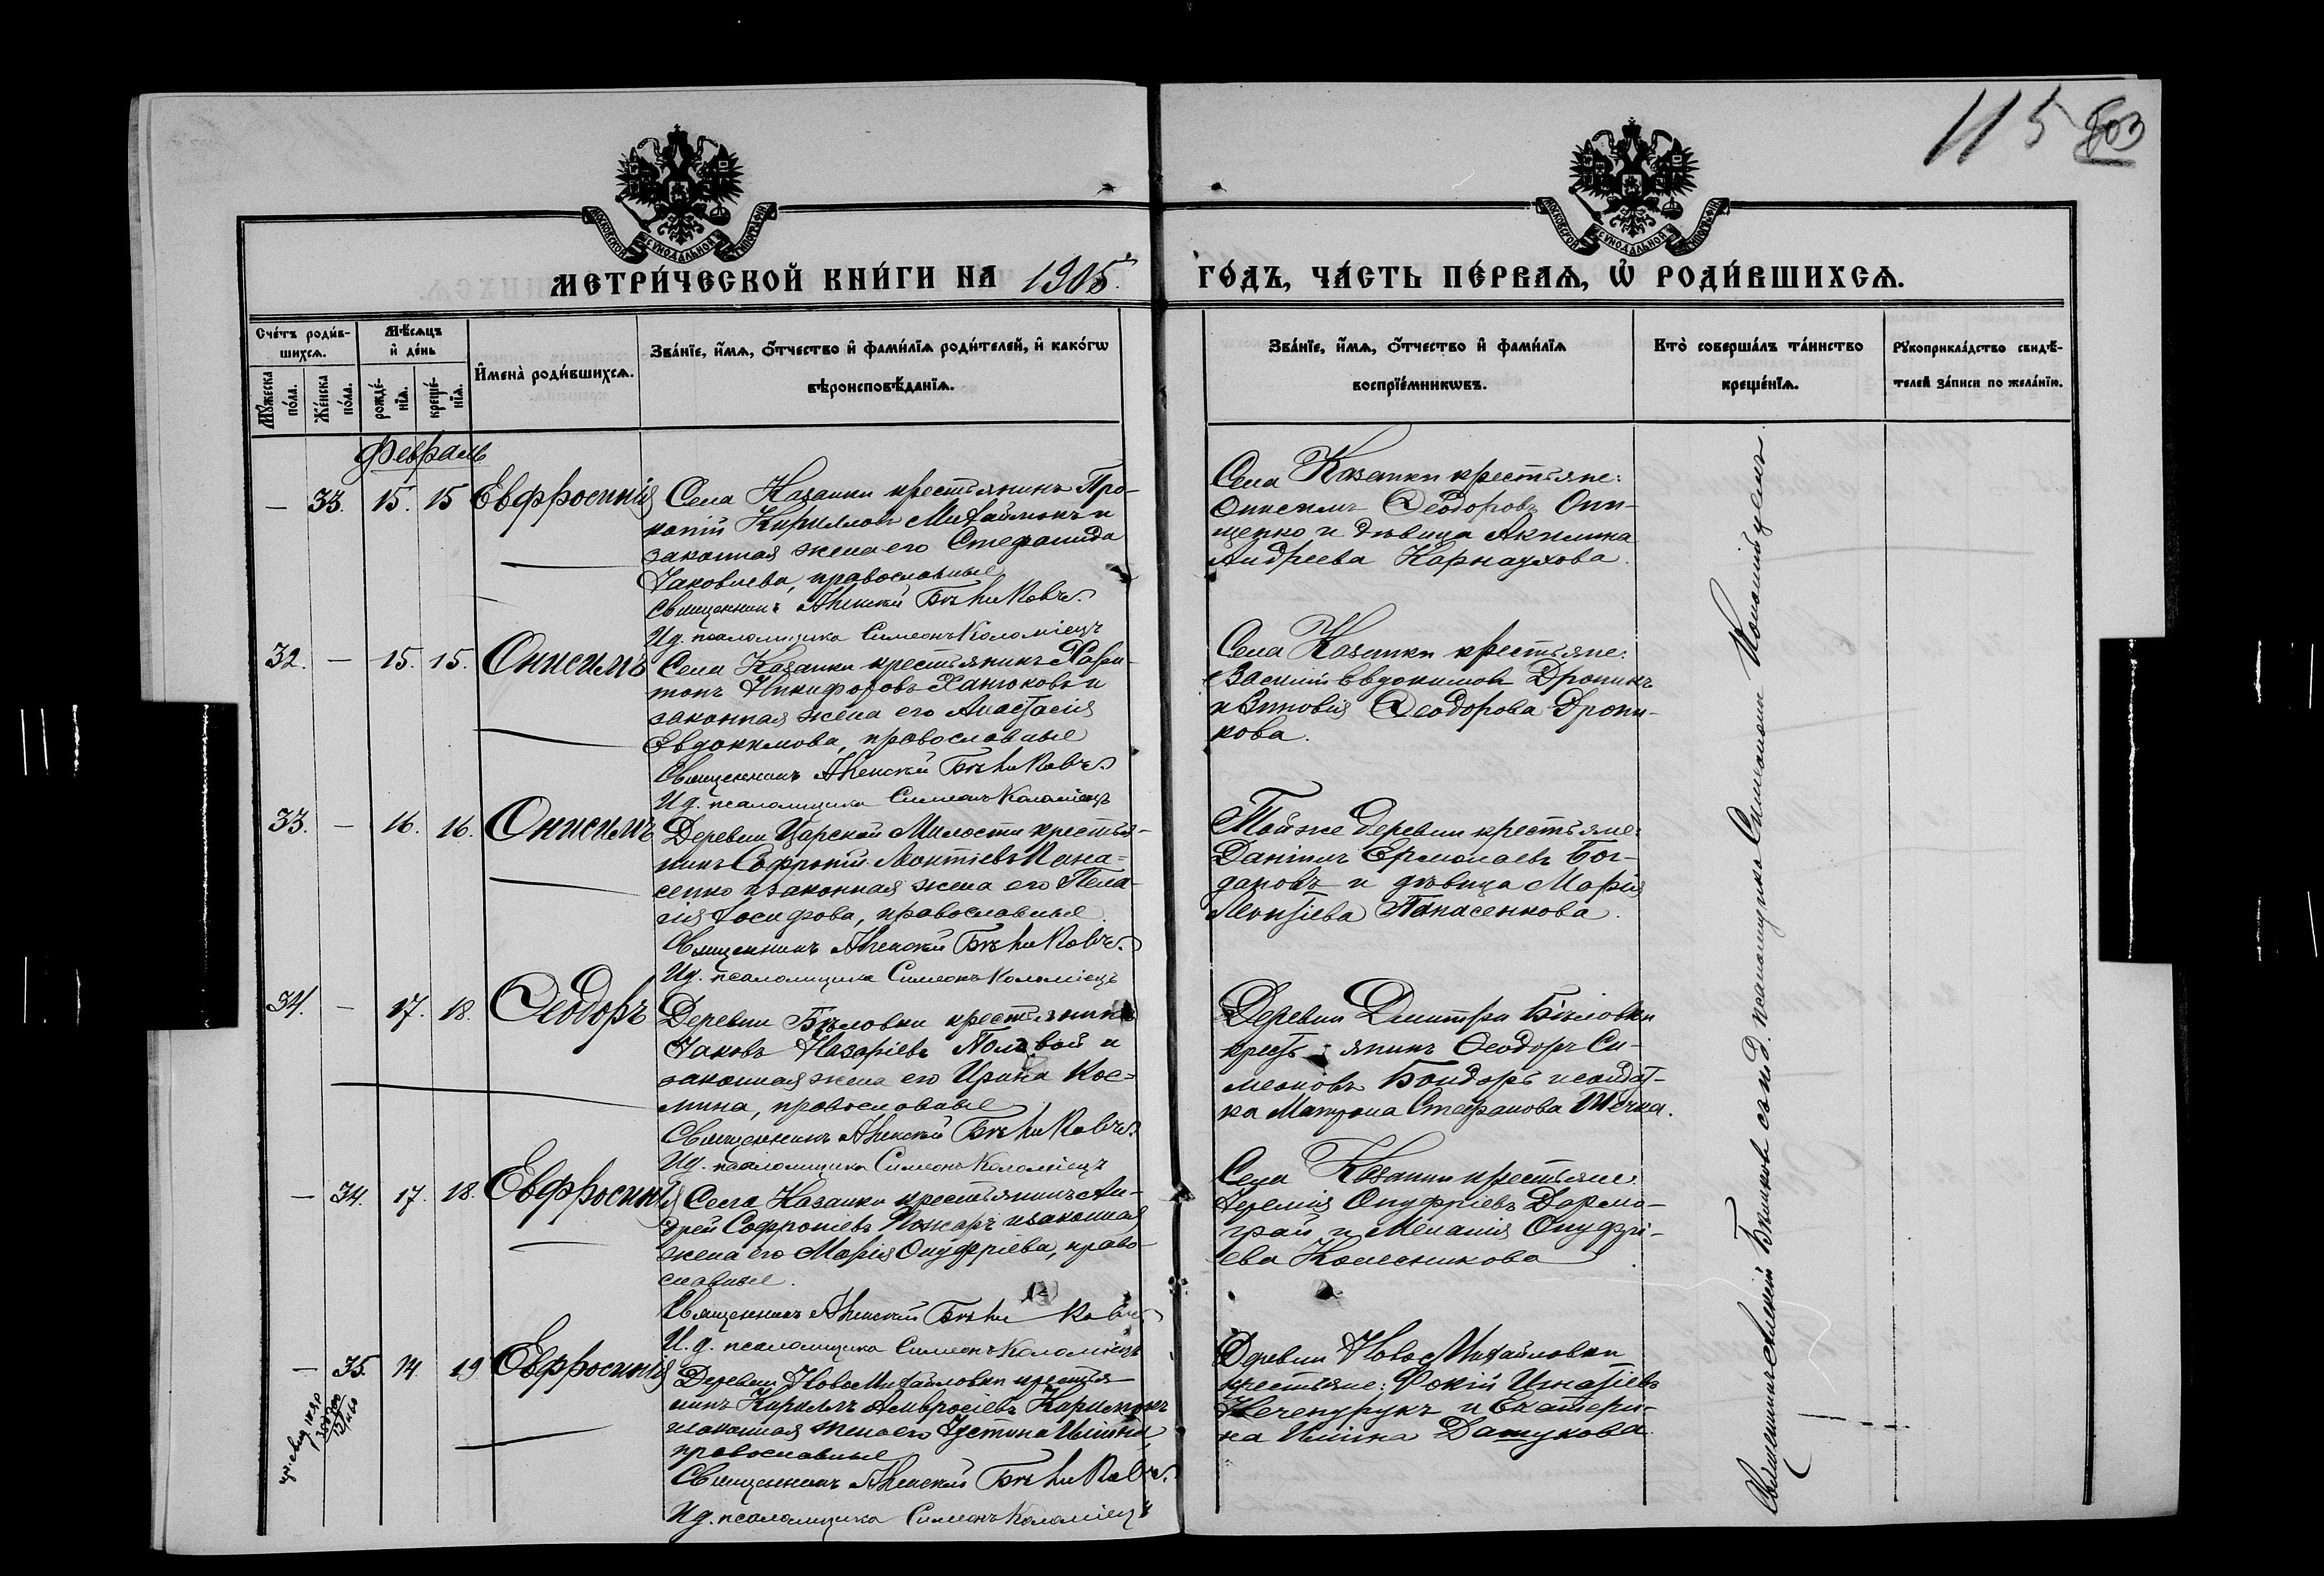 115 803
МОСКОВСКОЙ СѴНОДАЛЬНОЙ ТИПОГРАФІИ
МОСКОВСКОЙ СѴНОДАЛЬНОЙ ТИПОГРАФІИ
МЕТРИ́ЧЕСКОЙ КНИ́ГИ НА 1905 ГО́ДЪ, ЧА́СТЬ ПЕ́РВАѦ, Ѡ҆ РОДИ́ВШИХСѦ.
Сче́тъ роди́в-
шихсѧ.
Мꙋ́жеска
по́ла.
Же́нска
по́ла.
Мѣ́сѧцъ
и҆ де́нь
рожде́-
нїѧ.
креще́-
нїѧ.
И҆мена̀ роди́вшихсѧ.
Зва́нїе, и҆́мѧ, ѻ҆́тчество и҆ фами́лїѧ роди́телей, и҆ како́гѡ
вѣроисповѣ́данїѧ.
Зва́нїе, и҆́мѧ, ѻ҆́тчество и҆ фами́лїѧ
воспрїе́мникѡвъ.
Кто̀ соверша́лъ та́инство
креще́нїѧ.
Рꙋкоприкла́дство свидѣ́-
телей за́писи по жела́нїю.
Февраль
— 33. 15. 15 Евфросинія
Села Казанки крестьянинъ Про-
копій Кирилловъ Михайлюкъ и
законная жена его Стефанида
Іаковлева, православные
Священникъ Алексій Бѣликовъ.
И д. псаломщика Симеонъ Коломіецъ
Села Казанки крестьяне:
Онисимъ Ѳеодоровъ Они-
щенко и дѣвица Акилина
Андреева Карнаухова.
32. — 15. 15. Онисимъ
Села Казанки крестьянинъ Хари-
тонъ Никифоровъ Ханюковъ и
законная жена его Анастасія
Евдокимова, православные
Священникъ Алексій Бѣликовъ.
И д. псаломщика Симеонъ Коломіецъ
Села Казанки крестьяне:
Василій Евдокимовъ Дроникъ
и Зиновія Ѳеодорова Дрони-
кова.
33. — 16. 16. Онисимъ
Деревни Царской Милости крестья-
нинъ Софроній Леонтіевъ Пана-
сенко и законная жена его Пела-
гія Іосифова, православные.
Священникъ Алексій Бѣликовъ.
И д. псаломщика Симеонъ Коломіецъ
Той же деревни крестьяне:
Даніилъ Ермолаевъ Бог-
дановъ и дѣвица Марія
Леонтіева Панасенкова.
34. — 17. 18. Ѳеодоръ
Деревни Бѣловки крестьянинъ
Іаковъ Назаріевъ Половой и
законная жена его Ирина Кос-
мина, православные
Священникъ Алексій Бѣликовъ.
И д. псаломщика Симеонъ Коломіецъ
Деревни Дмитро Бѣловки
крестьянинъ Ѳеодоръ Си-
меоновъ Бондаръ и солдат-
ка Матрона Стефанова
— 34. 17. 18. Евфросинія
Села Казанки крестьянинъ Ан-
дрей Софроніевъ и законная
жена его Марія Онуфріева, право-
славные.
Священникъ Алексій Бѣликовъ
И. д. псаломщика Симеонъ Коломіецъ
Села Казанки крестьяне
Іеремія Онуфріевъ Дорма-
грай и Меланія Онуфрі-
ева Колесникова
— 35. 14. 19 Евфросинія
Деревни Ново Михайловки крестья
нинъ Кириллъ Амвросіевъ
и законная жена его Іустина Иліина,
православные
Священникъ Алексій Бѣликовъ.
И д. псаломщика Симеонъ Коломіецъ
Деревни Ново Михайловки
крестьяне: Фокій Игнатіевъ
Нечепурукъ и Екатери-
на Иліина Дацукова.
Священникъ Алексій Бѣликовъ съ и д. псаломщика Симеономъ Коломійцемъ.